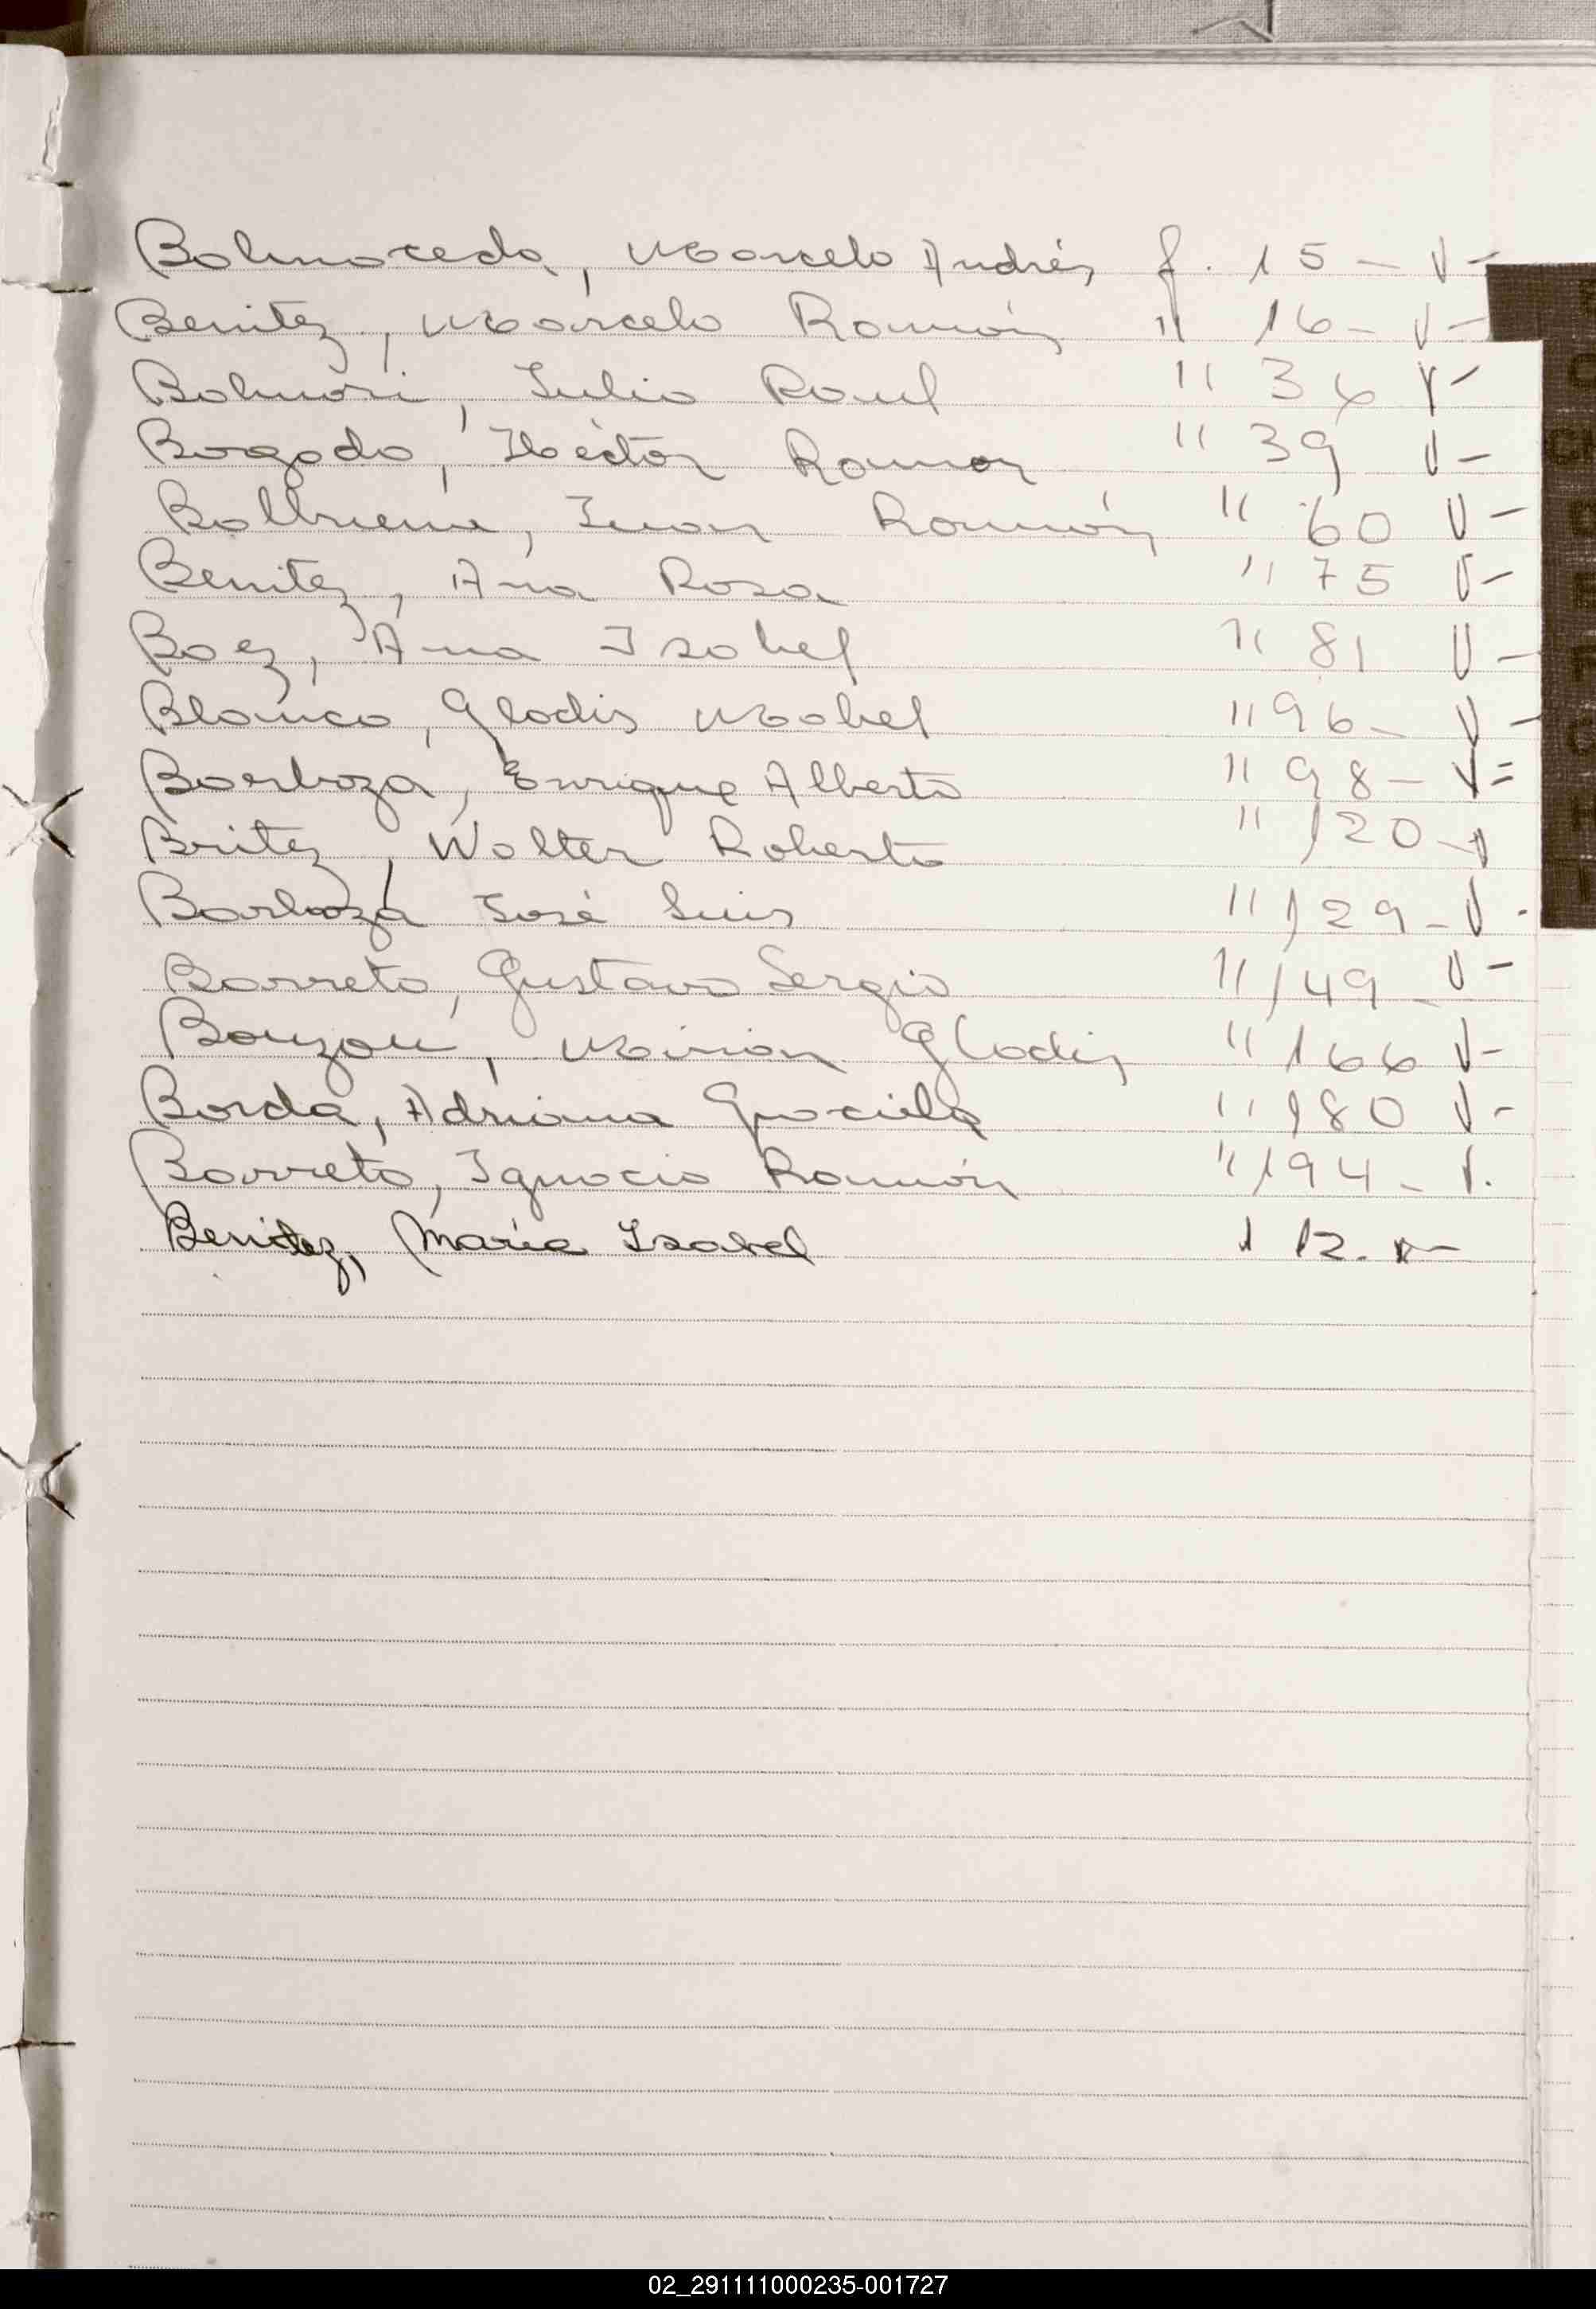 Balmaceda, Marcelo Andrés f. 15 - V -
Benitez, Marcelo Ramón " 16 - V -
Julio Raul " 36 V -
Bogado, Héctor Ramon " 39 V -
Juan Ramón " 60 V -
Benitez, Ana Rosa " 75 V -
Baez, Ana Isabel " 81 V -
Blanco, Gladis Mabel " 96 - V -
Barboza, Enrique Alberto " 98 - V =
Britez, Walter Roberto " 120 - V
Barboza José Luis " 129 - V -
Barreto, Gustavo Sergio " 149 - V -
Mirian Gladis " 166 V -
Borda, Adriana Graciela " 180 V -
Barreto, Ignacio Ramón " 194 - V.
Benitez, María Isabel 12. V -
02_291111000235-001727